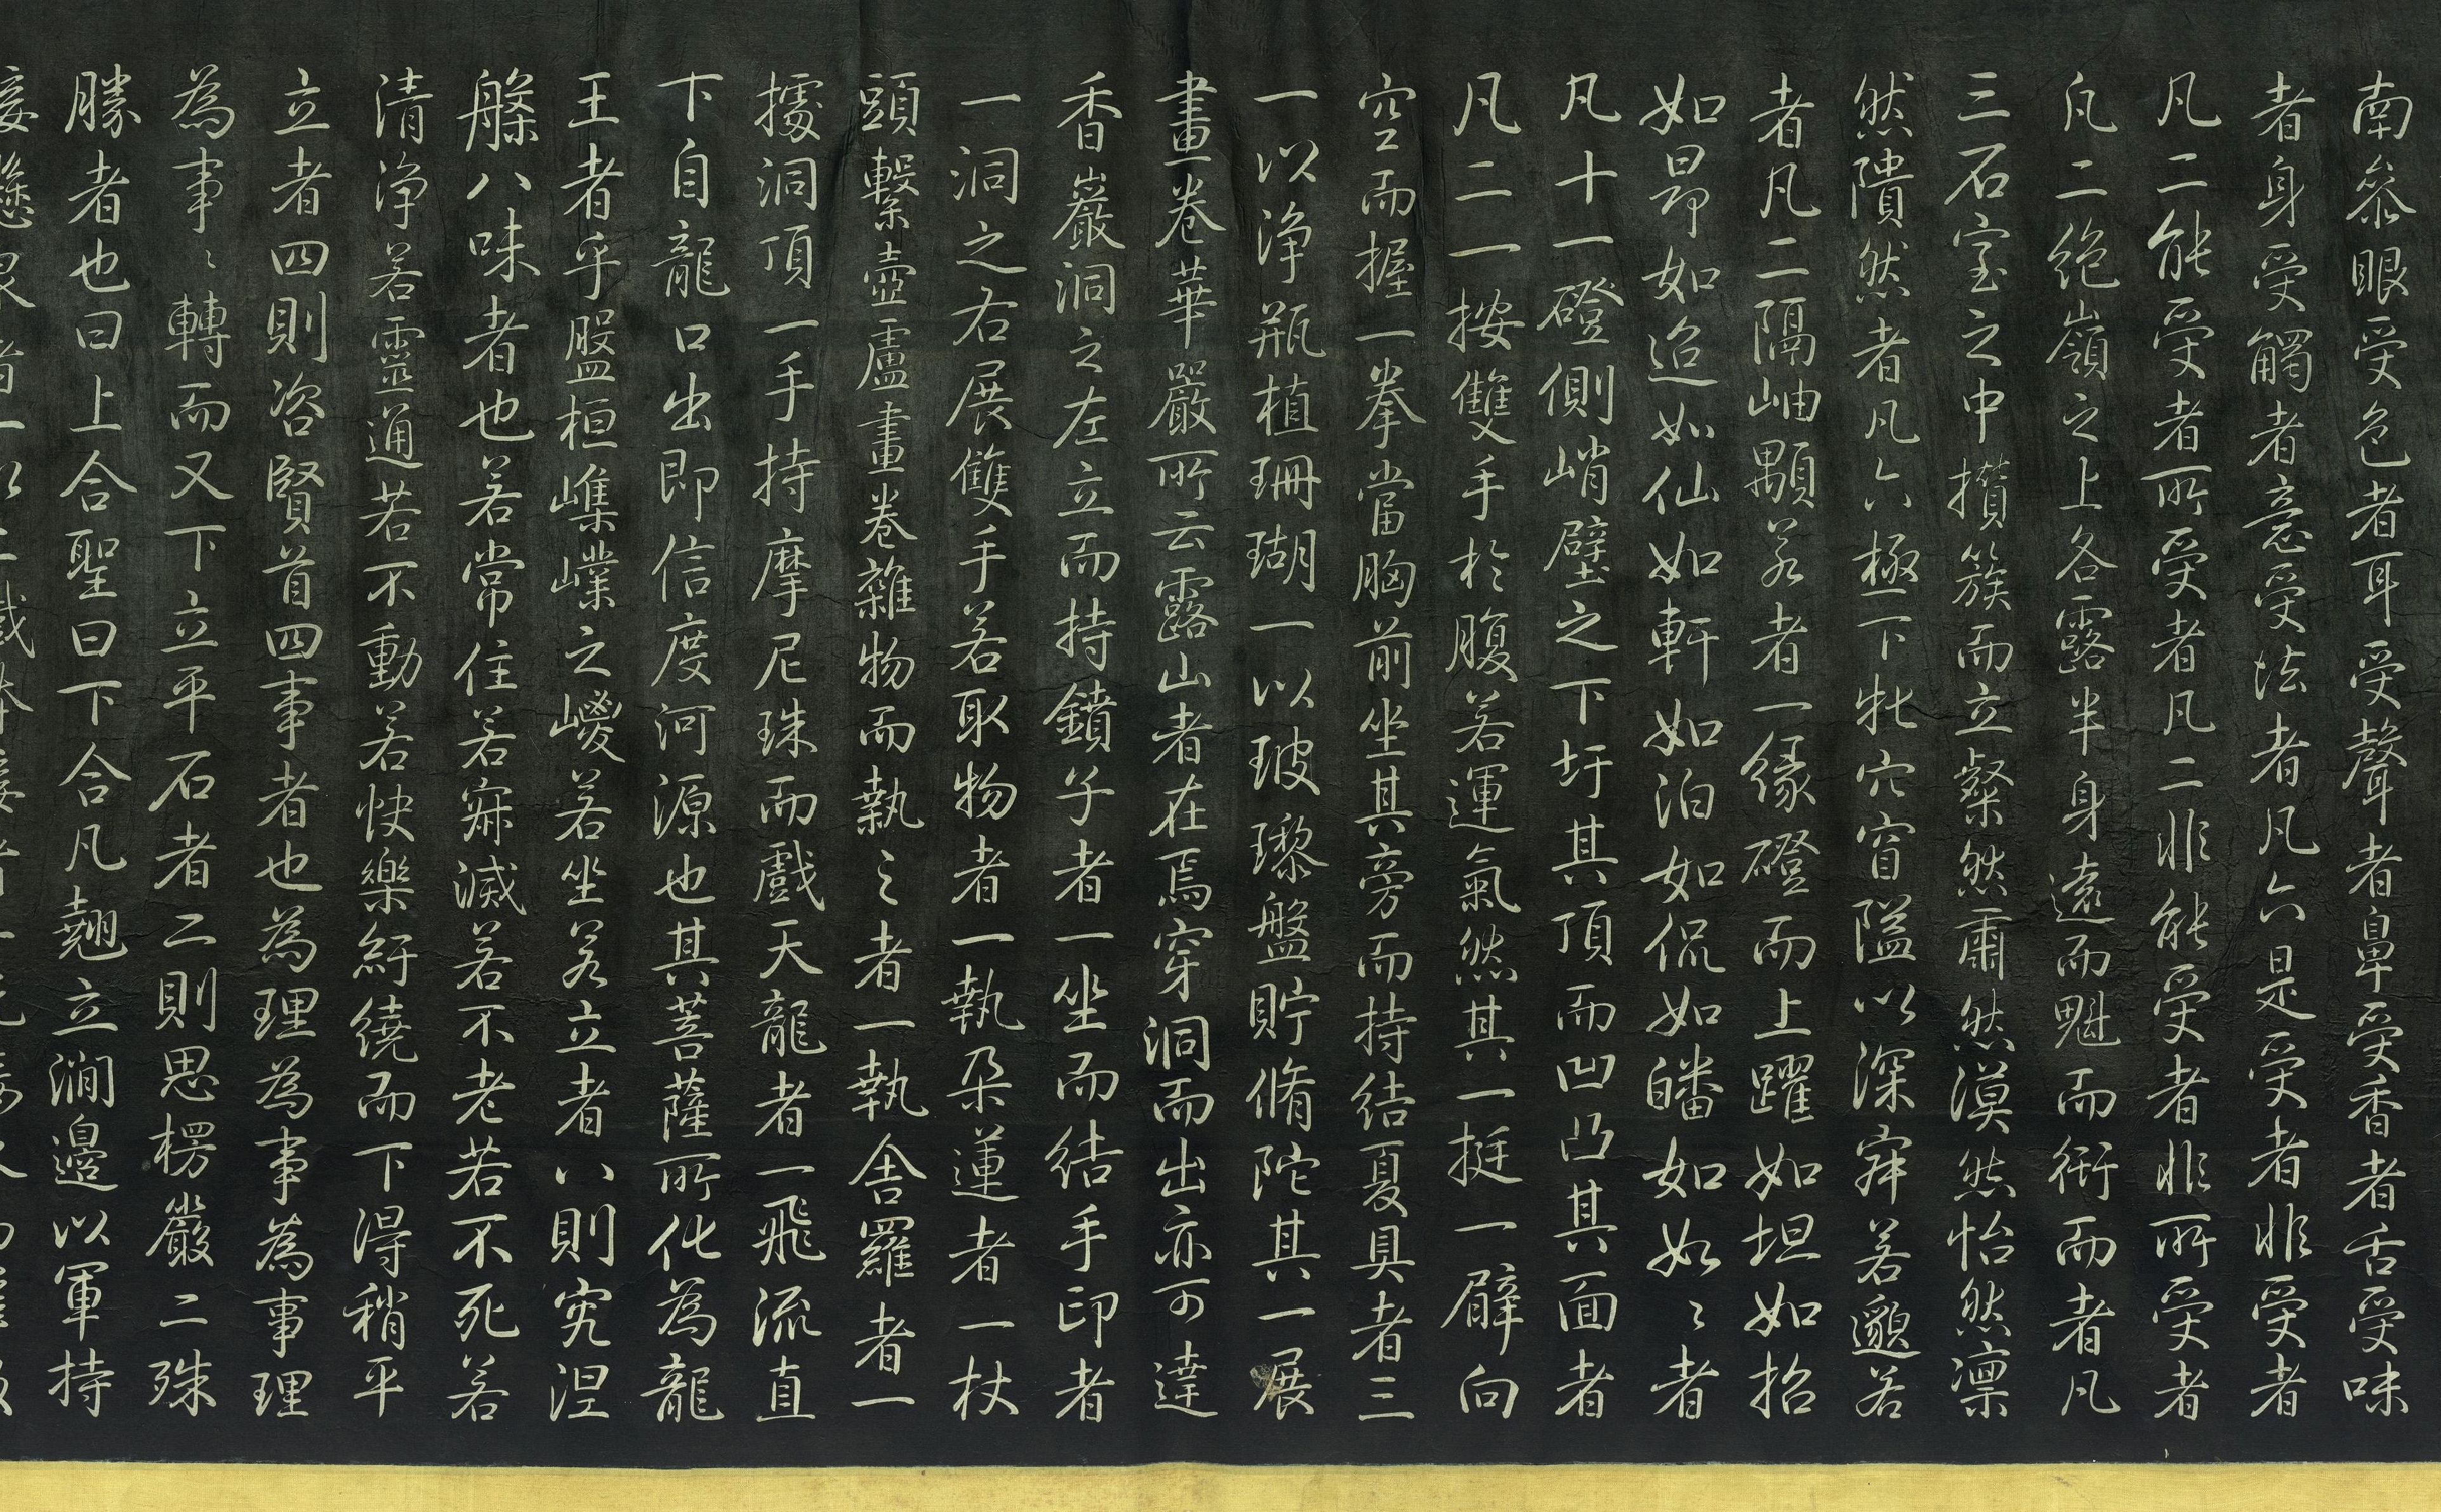 南叅眼受色者耳受聲者鼻受香者舌受味
者身受觸者意受法者凡六是受者非受者
凡二能受者所受者凡二非能受者非所受者
凡二絕嶺之上各露半身遠而魁而衎而者凡
三石室之中攢簇而立粲然肅然漠然怡然凛
然隤然者凡六極下牝穴窅隘以深窣若邈若
者凡二隔岫顒若者一緣磴而上躍如坦如招
如昂如迢如仙如軒如泊如侃如皤如如〻者
凡十一磴側峭壁之下圩其頂而凹凸其面者
凡二一按雙手於腹若運氣然其一挺一臂向
空而握一拳當胸前坐其旁而持結夏具者三
一以淨瓶植珊瑚一以玻瓈盤貯脩陀其一展
畫卷華嚴所云露山者在焉穿洞而出亦可達
香巖洞之左立而持鐼子者一坐而結手印者
一洞之右展雙手若取物者一執朵蓮者一杖
頭繫壺盧畫卷雜物而執之者一執舍羅者一
據洞頂一手持摩尼珠而戲天龍者一飛流直
下自龍口出即信度河源也其菩薩所化為龍
王者乎盤桓嶫嶫之巘若坐若立者八則究涅
槃八味者也若常住若寂滅若不老若不死若
清淨若靈通若不動若快樂紆繞而下得稍平
立者四則咨賢首四事者也為理為事為事理
為事〻轉而又下立平石者二則思楞嚴二殊
勝者也曰上合聖曰下合凡翹立澗邊以軍持